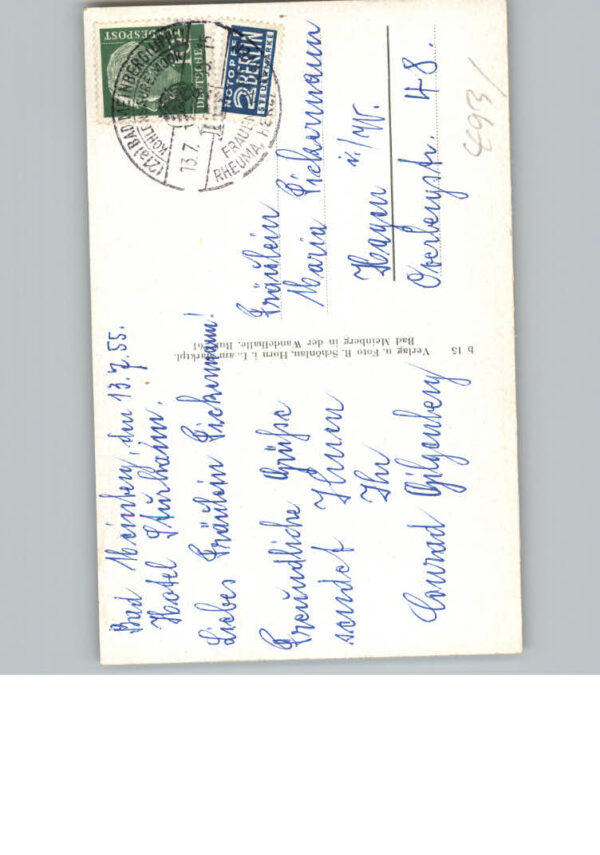 Bad Meinberg, den 13.7.55.
Hotel Sturhahn.
Liebes Fräulein Fickermann!
Freundliche Grüße
sendet Ihnen
Ihr
Conrad Gilgenberg
b 15 Verlag u. Foto R. Schönlau, Horn i. L. am Marktpl.
Bad Meinberg in der Wandelhalle. Ruf 61
DEUTSCHE BUNDESPOST
NOTOPFER
2 BERLIN
STEUERMARKE
(21a) BAD MEINBERG (LIPPE)
13.7.
FRAUEN
RHEUMA, HERZ
Fräulein
Maria Fickermann
Hagen i./W.
Overbergstr. 48.
493/